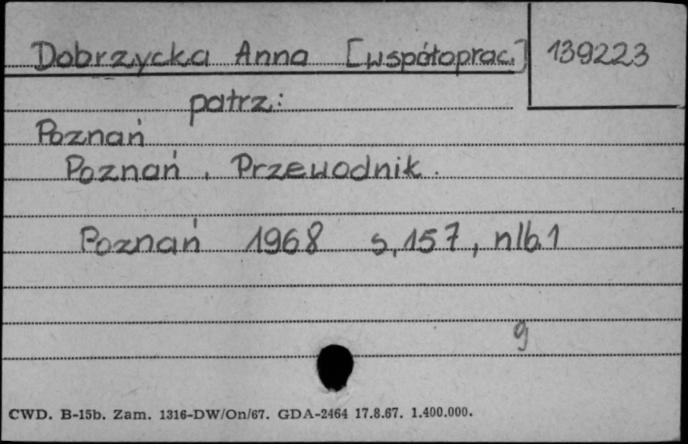 Dobrzycka Anna [współoprac.] 139223
patrz:
Poznań
Poznań. Przewodnik.
Poznań 1968 s. 157, nlb. 1
g
CWD. B-15b. Zam. 1316-DW/On/67. GDA-2464 17.8.67. 1.400.000.